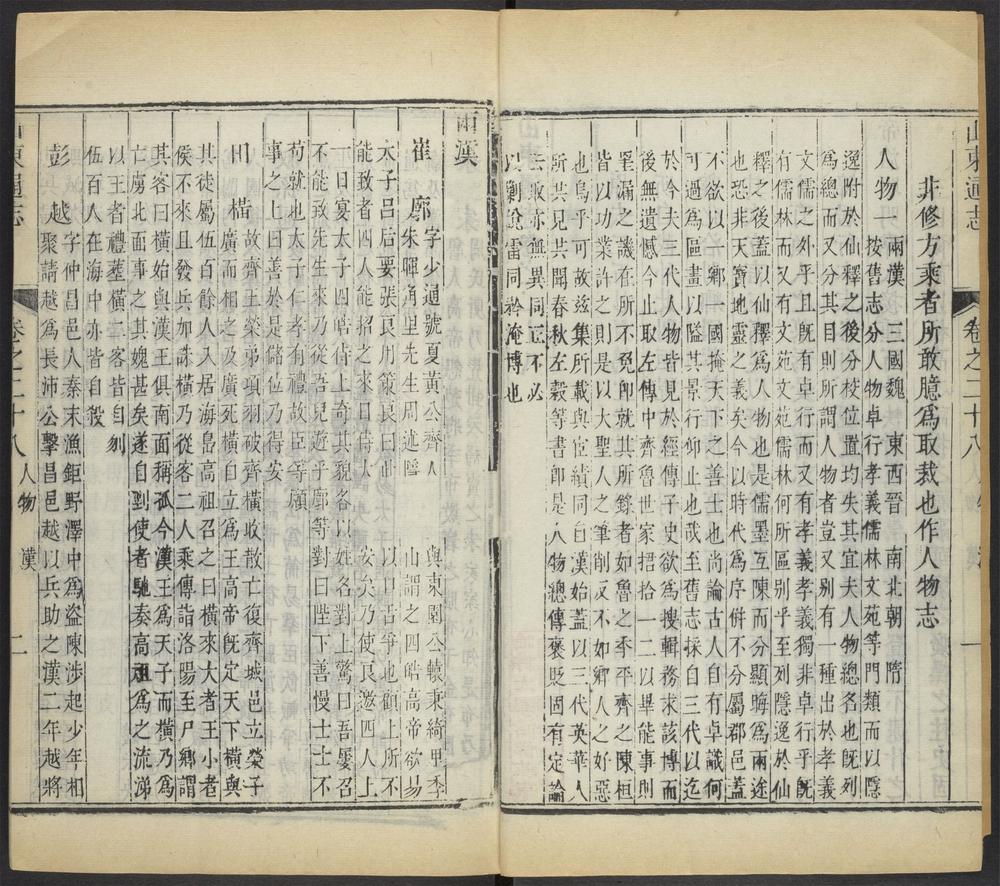 山東通志
卷之二十八
人物
漢
一
非修方乘者所敢臆爲取裁也作人物志
人物一 兩漢 三國魏 東西晉 南北朝 隋
按舊志分人物卓行孝義儒林文苑等門類而以隱
逸附於仙釋之後分枝位置均失其宜夫人物總名也旣列
爲總而又分其目則所謂人物者豈又别有一種出於孝義
文儒之外乎且旣有卓行而又有孝義孝義獨非卓行乎旣
有儒林而又有文苑文苑儒林何所區别乎至列隱逸於仙
釋之後蓋以仙釋爲人物也是儒墨互陳而分顯晦爲兩途
也恐非天寶地靈之義矣今以時代爲序併不分屬郡邑蓋
不欲以一鄉一國掩天下之善士也尚論古人自有卓識何
可過爲區畫以隘其景行仰止也哉至舊志採自三代以迄
於今夫三代人物皆見於經傳子史欲爲搜輯務求該博而
後無遺憾今止取左傳中齊魯世家招拾一二以畢能事則
罣漏之譏在所不免卽就其所錄者如魯之季平齊之陳桓
皆以功業許之則是以大聖人之筆削反不如鄉人之好惡
也烏乎可故兹集所載與宦績同自漢始蓋以三代英華人
所共見共聞春秋左穀等書卽是人物總傳褒貶固有定論
去取亦無異同正不必
以勦說雷同矜淹博也
兩漢
崔 廓 字少通號夏黃公齊人 與東園公轅秉綺里季
朱暉甪里先生周述隱 山謂之四皓高帝欲易
太子呂后要張良用策良曰 以口舌爭也顧上所不
能致者四人能招之來曰侍太 安矣乃使良邀四人上
一日宴太子四皓侍上奇其貌各以姓名對上驚曰吾屢召
不能致先生來乃從吾兒遊乎廓等對曰陛下善慢士士不
苟就也太子仁孝有禮故臣等願
事之上曰善於是儲位乃得安
田 橫 故齊王榮弟項羽破齊橫收散亡復齊城邑立榮子
廣而相之及廣死橫自立爲王高帝旣定天下橫與
其徒屬伍百餘人入居海島高祖召之曰橫來大者王小者
侯不來且發兵加誅橫乃從客二人乘傳詣洛陽至尸鄉謂
其客曰橫始與漢王俱南面稱孤今漢王爲天子而橫乃爲
亡虜北面事之其媿甚矣遂自剄使者馳奏高祖爲之流涕
以王者禮葬橫二客皆自刎
伍百人在海中亦皆自殺
彭 越 字仲昌邑人秦末漁鉅野澤中爲盜陳涉起少年相
聚請越爲長沛公擊昌邑越以兵助之漢二年越將
山東通志
卷之二十八
人物
漢
二